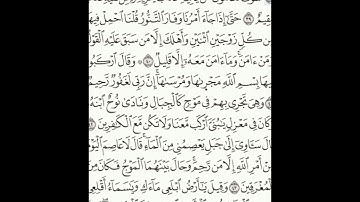 مُّقِيمٌ ٣٩ حَتَّىٰٓ إِذَا جَآءَ أَمْرُنَا وَفَارَ ٱلتَّنُّورُ قُلْنَا ٱحْمِلْ فِيهَا
مِن كُلٍّ زَوْجَيْنِ ٱثْنَيْنِ وَأَهْلَكَ إِلَّا مَن سَبَقَ عَلَيْهِ ٱلْقَوْلُ
وَمَنْ ءَامَنَ ۚ وَمَآ ءَامَنَ مَعَهُۥٓ إِلَّا قَلِيلٌ ٤٠ وَقَالَ ٱرْكَبُوا۟
فِيهَا بِسْمِ ٱللَّهِ مَجْر۪ىٰهَا وَمُرْسَىٰهَآ ۚ إِنَّ رَبِّى لَغَفُورٌ رَّحِيمٌ
وَهِىَ تَجْرِى بِهِمْ فِى مَوْجٍ كَٱلْجِبَالِ وَنَادَىٰ نُوحٌ ٱبْنَهُۥ
وَكَانَ فِى مَعْزِلٍ يَٰبُنَىَّ ٱرْكَب مَّعَنَا وَلَا تَكُن مَّعَ ٱلْكَٰفِرِينَ
قَالَ سَـَٔاوِىٓ إِلَىٰ جَبَلٍ يَعْصِمُنِى مِنَ ٱلْمَآءِ ۚ قَالَ لَا عَاصِمَ ٱلْيَوْمَ
مِنْ أَمْرِ ٱللَّهِ إِلَّا مَن رَّحِمَ ۚ وَحَالَ بَيْنَهُمَا ٱلْمَوْجُ فَكَانَ مِنَ
ٱلْمُغْرَقِينَ ٤٣ وَقِيلَ يَٰٓأَرْضُ ٱبْلَعِى مَآءَكِ وَيَٰسَمَآءُ أَقْلِعِى